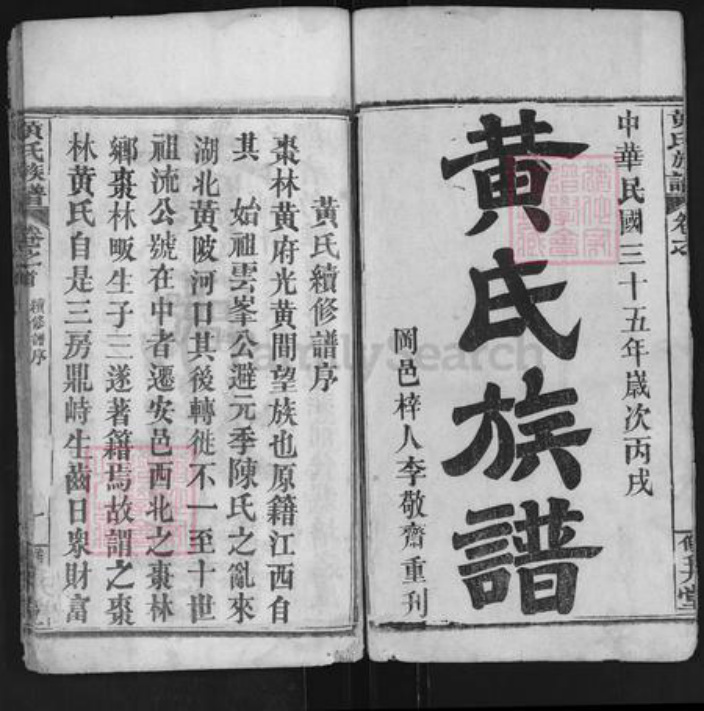 黃氏族譜
卷之
中華民國三十五年歲次丙戌
黃氏族譜
岡邑梓人李敬齋重刊
黃氏續修譜序
棗林黃府光黃間望族也原籍江西自
其 始祖雲峯公避元季陳氏之亂來
湖北黃陂河口其後轉徙不一至十世
祖流公號在中者遷安邑西北之棗林
鄉棗林畈生子三遂著籍焉故謂之棗
林黃氏自是三房鼎峙生齒日衆財富
黃氏族譜
卷之首
續修譜序
一
FamilySearch